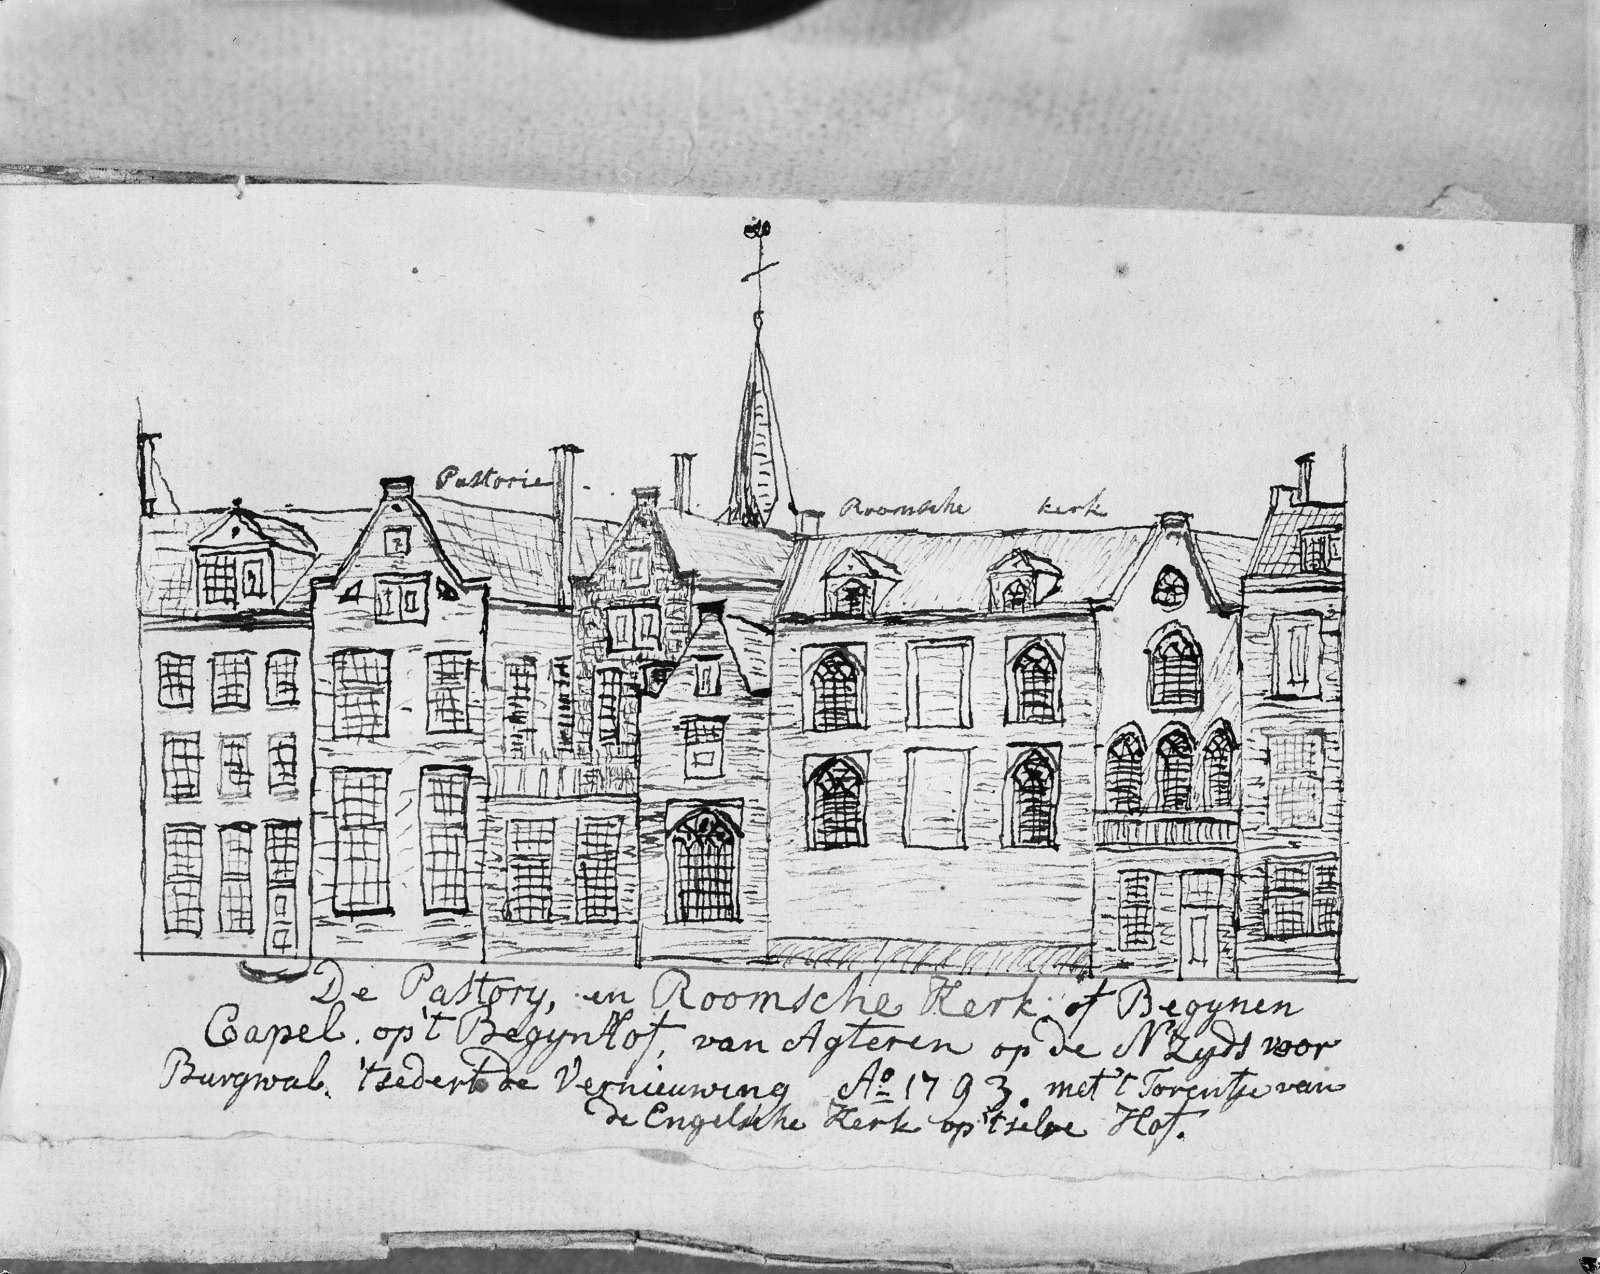 Pastorie
Roomsche kerk
De Pastory, en Roomsche Kerk, of Begynen
Capel. op't BegynHof, van Agteren op de N'Zyds voor
Burgwal. 'tsedert de Vernieuwing Aº 1793. met 't Torentje van
de Engelsche Kerk op 't selve Hof.